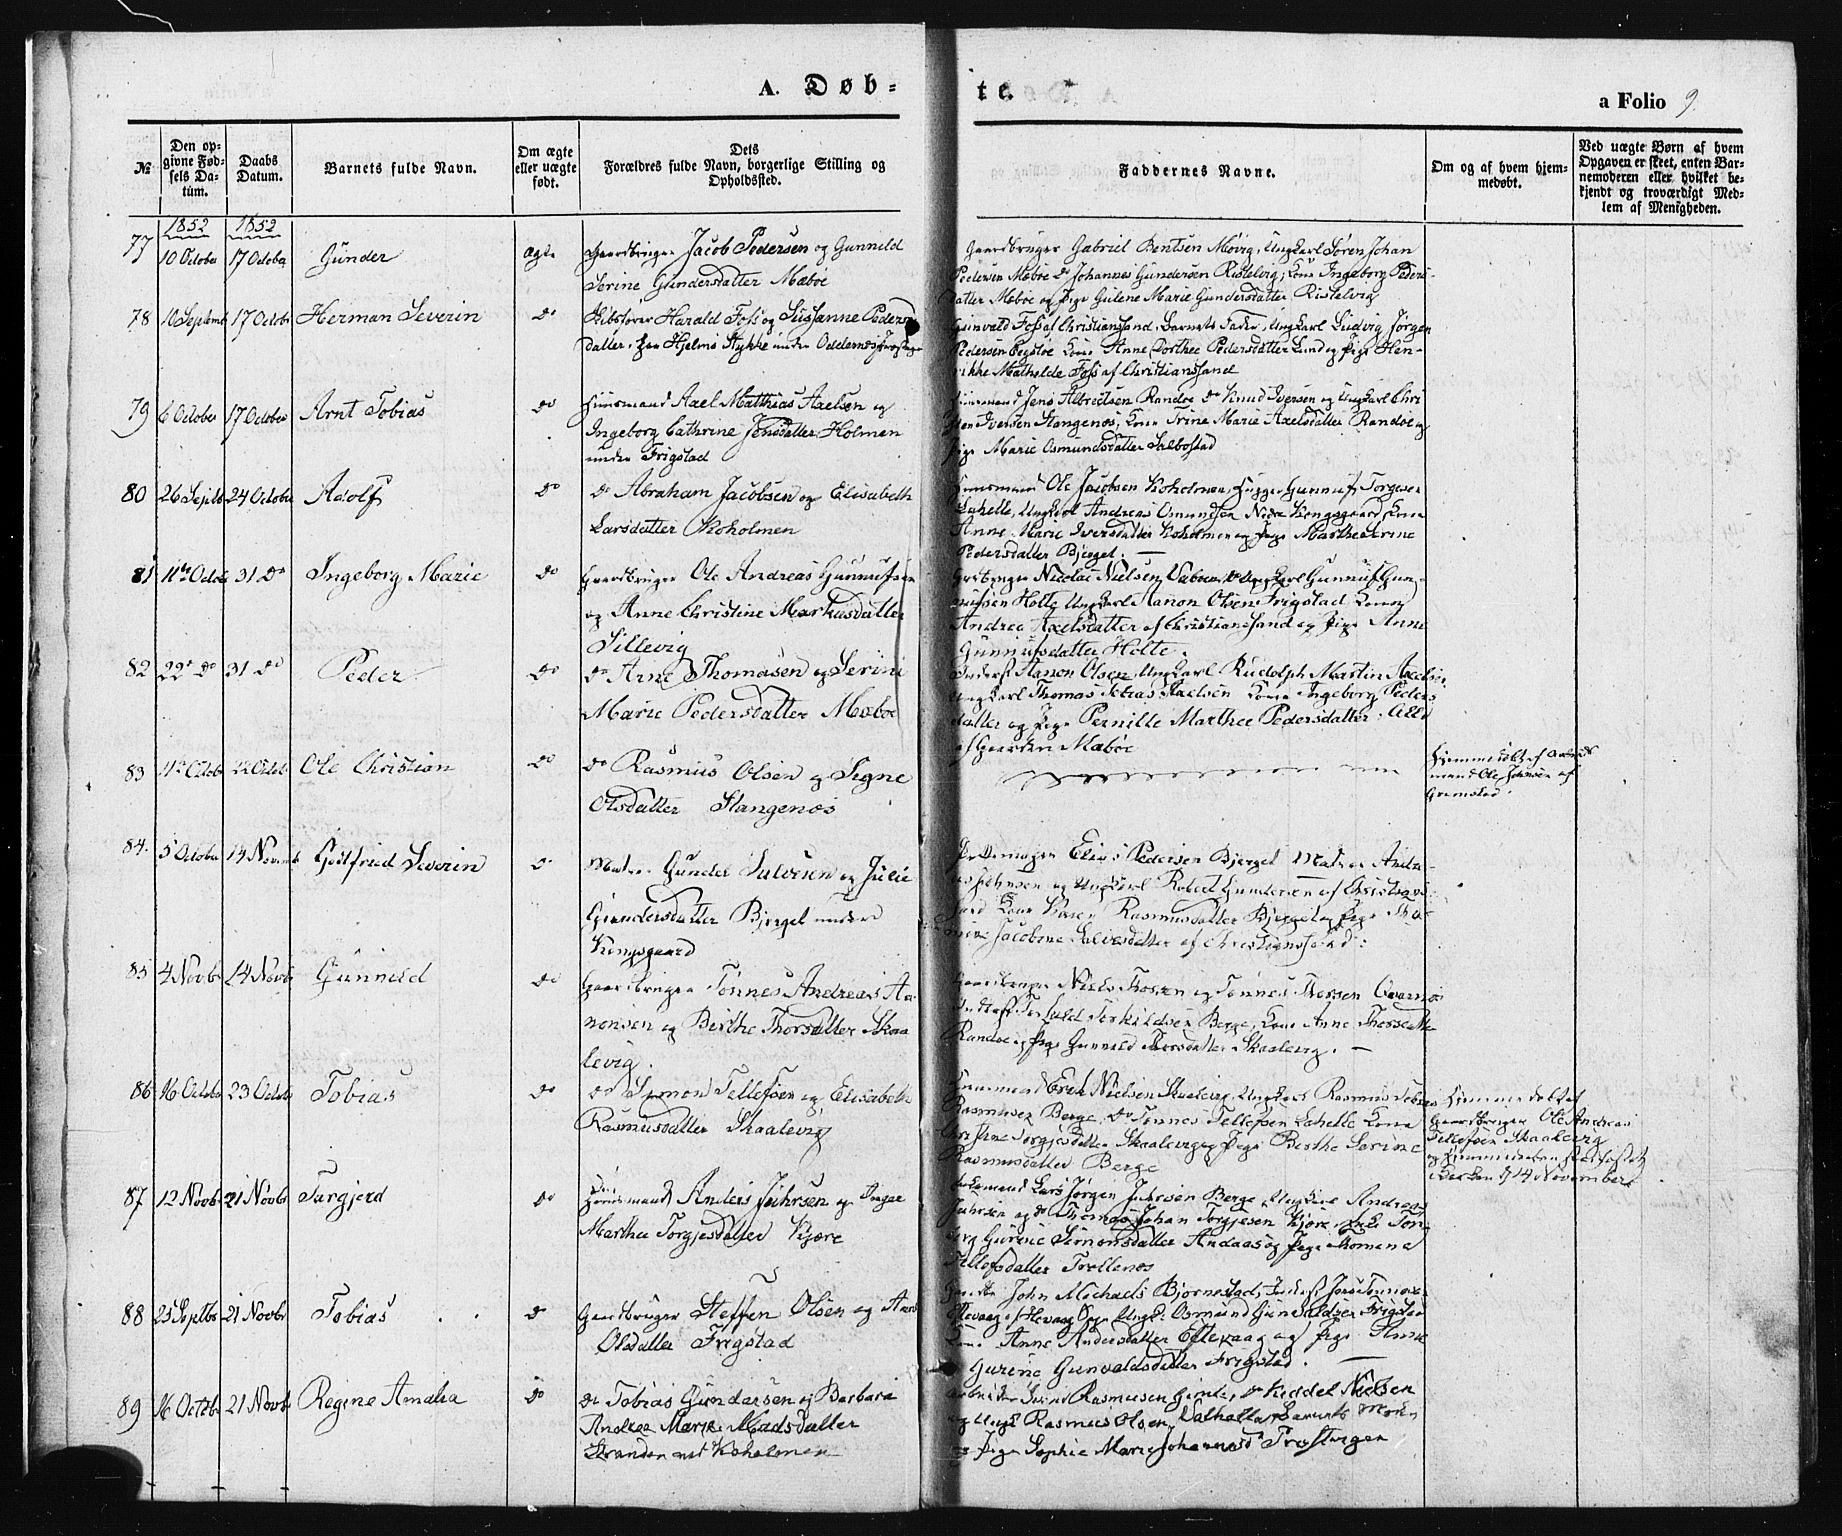 A. Døb-
te.
a Folio 9.
№
Den opgivne Fødsels Datum.
Daabs Datum.
Barnets fulde Navn.
Om ægte eller uægte født.
Dets Forældres fulde Navn, borgerlige Stilling og Opholdssted.
Faddernes Navne.
Om og af hvem hjemmedøbt.
Ved uægte Børn af hvem Opgaven er skeet, enten Barnemoderen eller hvilket bekjendt og troværdigt Medlem af Menigheden.
1852 1852
77 10 October 17 October Gunder Ægte Gaardbruger Jacob Pedersen og Gunneld
Serine Gundersdatter Mæbøe
Gaardbruger Gabriel Bentsen Møvig, Ungkarl Søren Johan
Pedersen Mæbøe Do Johannes Gundersen Ristelvig, Kone Ingeborg Peders
datter Mæbøe og Pige Gulene Marie Gundersdatter Ristelvig
78 10 Septemb 17 Octobr Herman Severin Do Skibsfører Harald Foss og Susanne Peders
datter, Hjelms Stykke under Oddernes Præstegd
Gunvald Foss af Christiansand, Barnets Fader, Ungkarl Ludvig Jørgen
Pedersen Kone Anne Dorthee Pedersdatter Lund og Pige Hen-
rikke Mathilde Foss af Christianssand
79 6 October 17 October Arnt Tobias Do Huusmand Axel Matthias Axelsen og
Ingeborg Cathrine Jensdatter Holmen
under Frigstad
Huusmand Jens Albrectsen Randøe Do Knud Iversen og Ungkarl Chri
Iversen Stangenæs, Kone Trine Marie Axelsdatter Randøe og
Pige Marie Osmundsdatter
80 26 Septb 24 Octobr Adolf Do Do Abraham Jacobsen og Elisabeth
Larsdatter Koholmen
Huusmand Ole Jacobsen Koholmen, Gunnuf Torgesen
Lahelle, Ungkarl Andreas Osmundsen Nedre Kongsgaard, Kone
Anne Marie Iversdatter Koholmen og Pige Marthe Serine
Pedersdatter Bjerget. —
81 11te Octob 31 Do Ingeborg Marie Do Gaardbruger Ole Andreas Gunnufsen
og Anne Christine Markusdatter
Sillevig
Nicolai Nielsen Ungkarl Gunnuf Gun-
nufsen Holte Ungkarl Aanon Olsen Frigstad Kone
Andrea Axelsdatter af Christianssand og Pige Anne
Gunnufsdatter Holte.
82 22de Do 31 Do Peder Do Do Arne Thomasen og Serine
Marie Pedersdatter Mæbøe
Inderst Aanon Olsen, Ungkarl Rudolph Martin Axelsen
Ungkarl Thomas Axelsen Kone Ingeborg Peders
datter og Pige Pernille Marthee Pedersdatter, Alle
af Gaarden Mæbøe
83 Ole Christian Do Do Rasmus Olsen og Signe
Olsdatter Stangenæs
Hjemmedøbt af
mand Ole Johnsen af
Grimstad.
84. 5 October 14 Novemb Gotfried Severin Do Gunder Salvesen og Julie
Gundersdatter Bjerget under
Kongsgaard
Elias Pedersen Bjerget Andre-
as Johnsen og Ungkarl Robert Gundersen af Christians
sand Kone Karen Rasmusdatter Bjerget og Pige
Jacobine Salvesdatter af Christianssand.
85 4 Novbr 14 Novbr Gunneld Do Gaardbruger Tønnes Andreas Aa-
nonsen og Berthe Thorsdatter Skaa
levig.
Gaardbruger Niels Thorsen og Tønnes Thorsen
Terkildsen Berge, Kone Anne
Randøe og Pige Gunneld Thorsdatter Skaalevig. —
86 16 Octobr 23 Octobr Tobias Do Do Simon Tellefsen og Elisabeth
Rasmusdatter Skaalevig
Huusmand Erik Nielsen Skaalevig, Ungkarl Rasmus Tobias
Rasmusen Berge, Do Tønnes Tellefsen Lahelle Kone
Torgjesdatter Skaalevig og Pige Berthe Serine
Rasmusdatter Berge
Hjemmedøbt af
Gaardbruger Ole Andreas
Tellefsen Skaalevig
og Hjemmedaaben stadfæstet
i Kirken d 14 November
87 12 Novbr 21 Novbr Targjerd Do Huusmand Anders Juhrsen og Inger
Marthea Torgjesdatter Kjære
Lars Jørgen Juhrsen Berge, Ungkarl Andreas
Juhrsen og Do Thomas Johan Torgjesen Kjære, Enke Ton
Gurine Simonsdatter Andaas og Pige
Tellefsdatter Trællenæs
88 25 Septbr 21 Novbr Tobias Do Gaardbruger Steffen Olsen og
Olsdatter Frigstad
John Michaels Bjørnestad,
Ungk. Osmund Gunvaldsen Frigstad
Kone Anne Andersdatter Eftevaag og Pige Anne
Gurine Gunvaldsdatter Frigstad. —
89 16 Octbr 21 Novbr Regine Amalia Do Do Tobias Gundersen og Barbara
Andrea Marie Madsdatter
Stranden ved Koholmen
Rasmusen Gimle, Do Keddel Nielsen
og Ungk Rasmus Olsen Valhalla, Barnets Moder
og Pige Sophie Marie